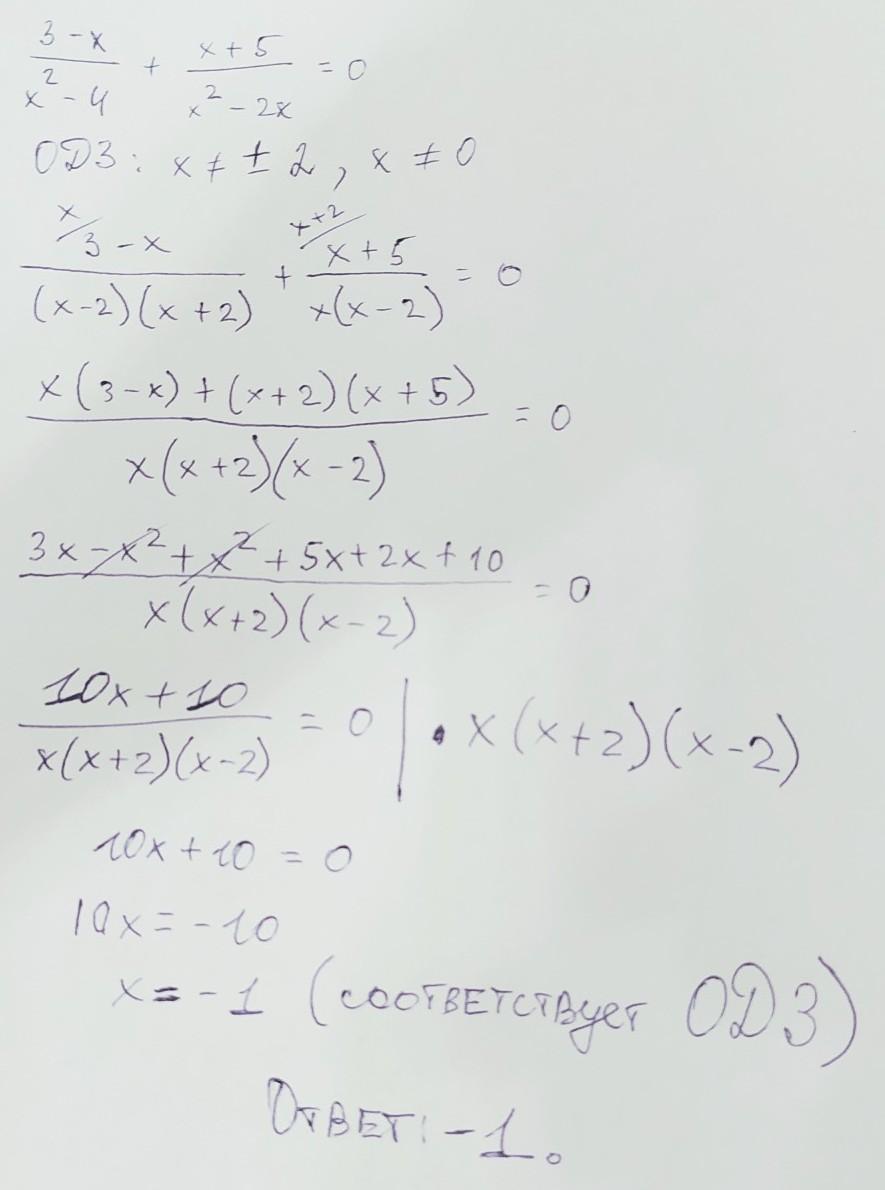 (3-x)/(x²-4) + (x+5)/(x²-2x) = 0
ОДЗ: x ≠ ±2, x ≠ 0
x/ (3-x)/((x-2)(x+2)) + x+2/ (x+5)/(x(x-2)) = 0
(x(3-x)+(x+2)(x+5))/(x(x+2)(x-2)) = 0
(3x-x²+x²+5x+2x+10)/(x(x+2)(x-2)) = 0
(10x+10)/(x(x+2)(x-2)) = 0 | · x(x+2)(x-2)
10x+10 = 0
10x = -10
x = -1 (соответствует ОДЗ)
Ответ: -1.